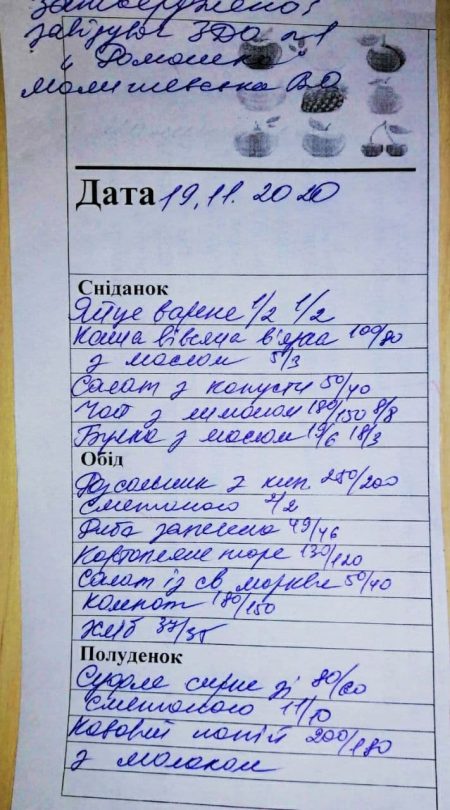 Затверджено:
завідувач ЗДО №1
"Ромашка"
Малишевська ВО
Дата 19.11.2020
Сніданок
Яйце варене 1/2 1/2
Каша вівсяна в'язка 100/80
з маслом 5/3
Салат з капусти 50/40
Чай з лимоном 180/150 8/8
Булка з маслом 19/6 18/3
Обід
Розсольник з кип 250/200
Сметаною 2/2
Риба запечена 49/46
Картопляне пюре 130/120
Салат із св моркви 50/40
Компот 180/150
Хліб 37/35
Полуденок
сирне зі 80/60
Сметаною 11/10
Кавовий напій 200/180
з молоком